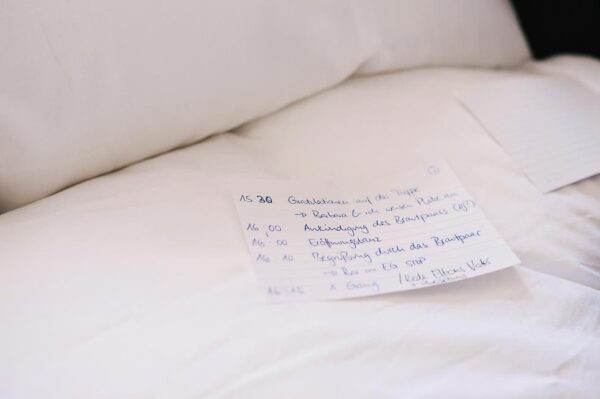 ①
15 30 Gratulationen auf der Treppe
→ Barbara & ich weisen Plätze an
16 00 Ankündigung des Brautpaares (DJ?)
16 00 Eröffnungstanz
16 10 Begrüßung durch das Brautpaar
→ Bar im EG STOP
16 15 1. Gang / Rede Vater